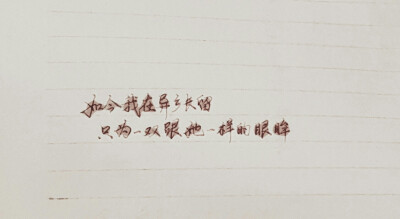 如今我在异乡长留
只为一双跟她一样的眼眸